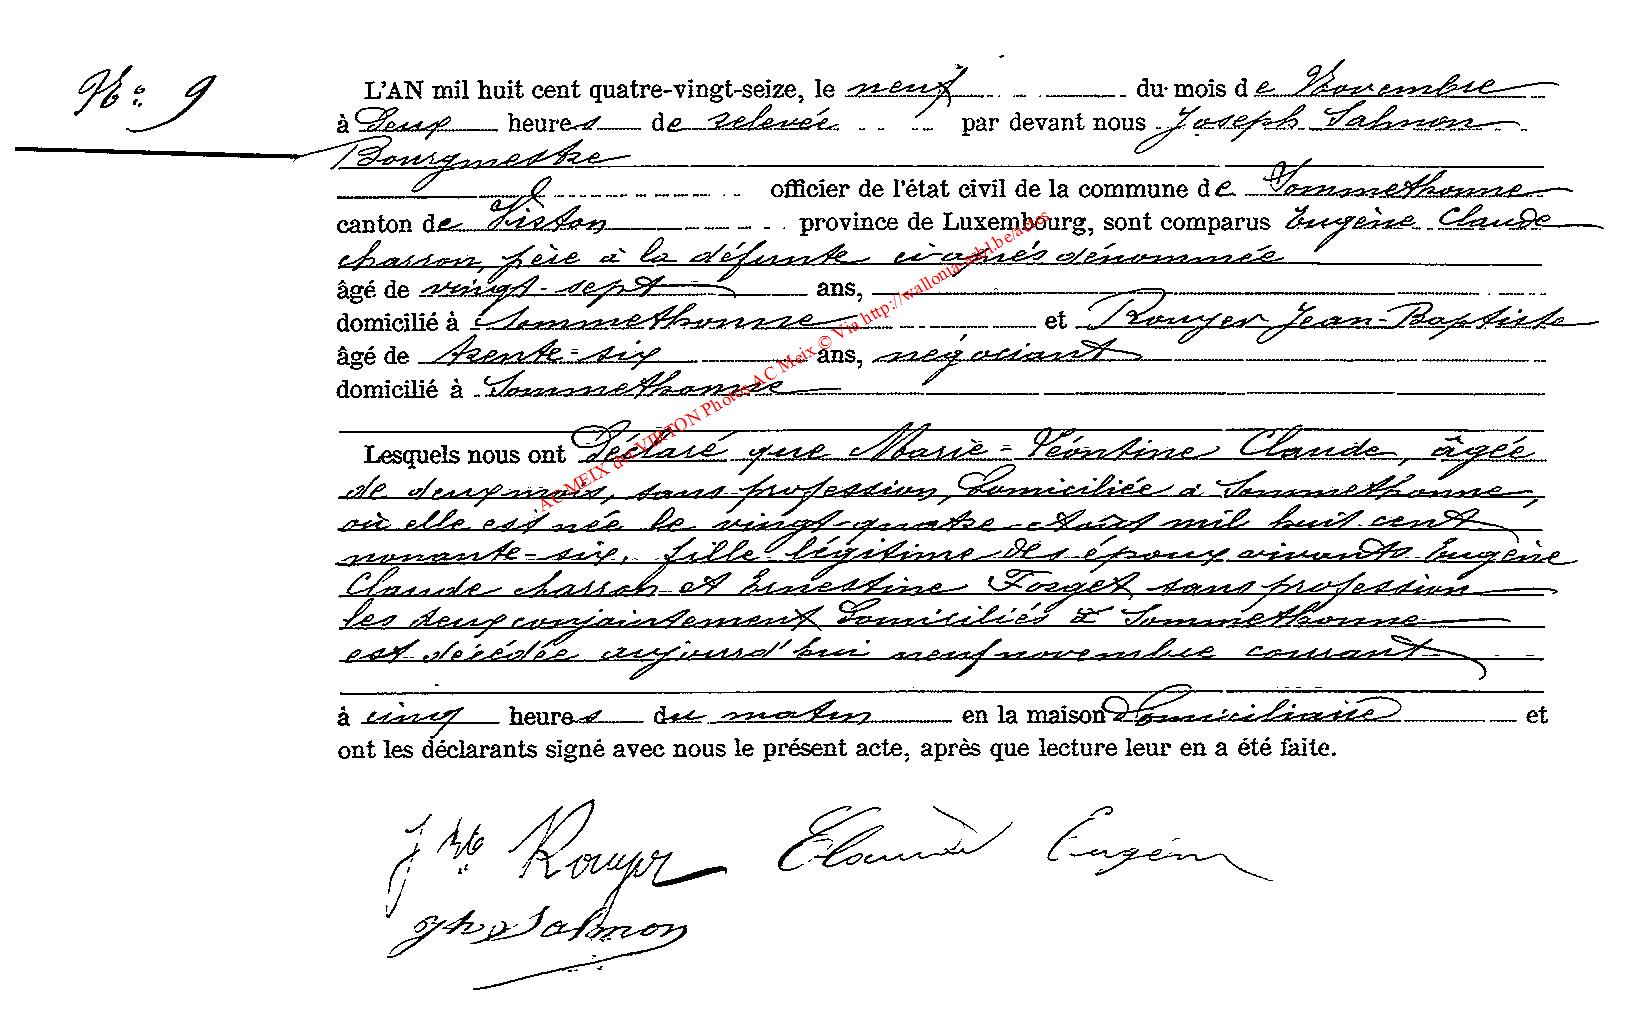 No. 9
L'AN mil huit cent quatre-vingt-seize, le neuf du mois de Novembre
à Deux heures de relevée par devant nous Joseph Salmon
Bourgmestre
officier de l'état civil de la commune de Sommethonne
canton de Virton province de Luxembourg, sont comparus Eugène Claude
charron, père à la défunte ci-après dénommée
âgé de vingt-sept ans,
domicilié à Sommethonne et Rouyer Jean-Baptiste
âgé de trente-six ans, négociant
domicilié à Sommethonne
Lesquels nous ont Déclaré que Marie-Léontine Claude, âgée
de deux mois, sans profession, Domiciliée à Sommethonne,
où elle est née le vingt-quatre Août mil huit cent
nonante-six, fille légitime des époux vivants Eugène
Claude charron et Ernestine Forget sans profession
les deux conjointement Domiciliés à Sommethonne
est décédée aujourd'hui neuf novembre courant
à cinq heures du matin en la maison Domiciliaire et
ont les déclarants signé avec nous le présent acte, après que lecture leur en a été faite.
J Bte Rouyer Claude Eugène
Jph Salmon
AC MEIX dvt VIRTON Photos AC Meix © Via http://wallonia-asbl.be/actes